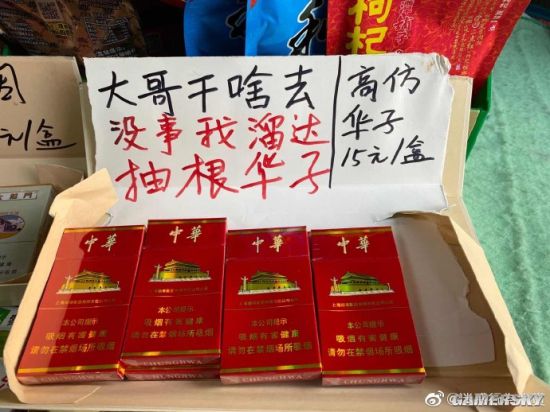 枸杞
大哥干啥去
没事我溜达
抽根华子
高仿
华子
15元/盒
元/盒
中華
本公司提示
吸烟有害健康
请勿在禁烟场所吸烟
CHUNGHWA
中華
本公司提示
吸烟有害健康
请勿在禁烟场所吸烟
CHUNGHWA
中華
本公司提示
吸烟有害健康
请勿在禁烟场所吸烟
CHUNGHWA
中華
本公司提示
吸烟有害健康
请勿在禁烟场所吸烟
CHUNGHWA
GAMERSKY